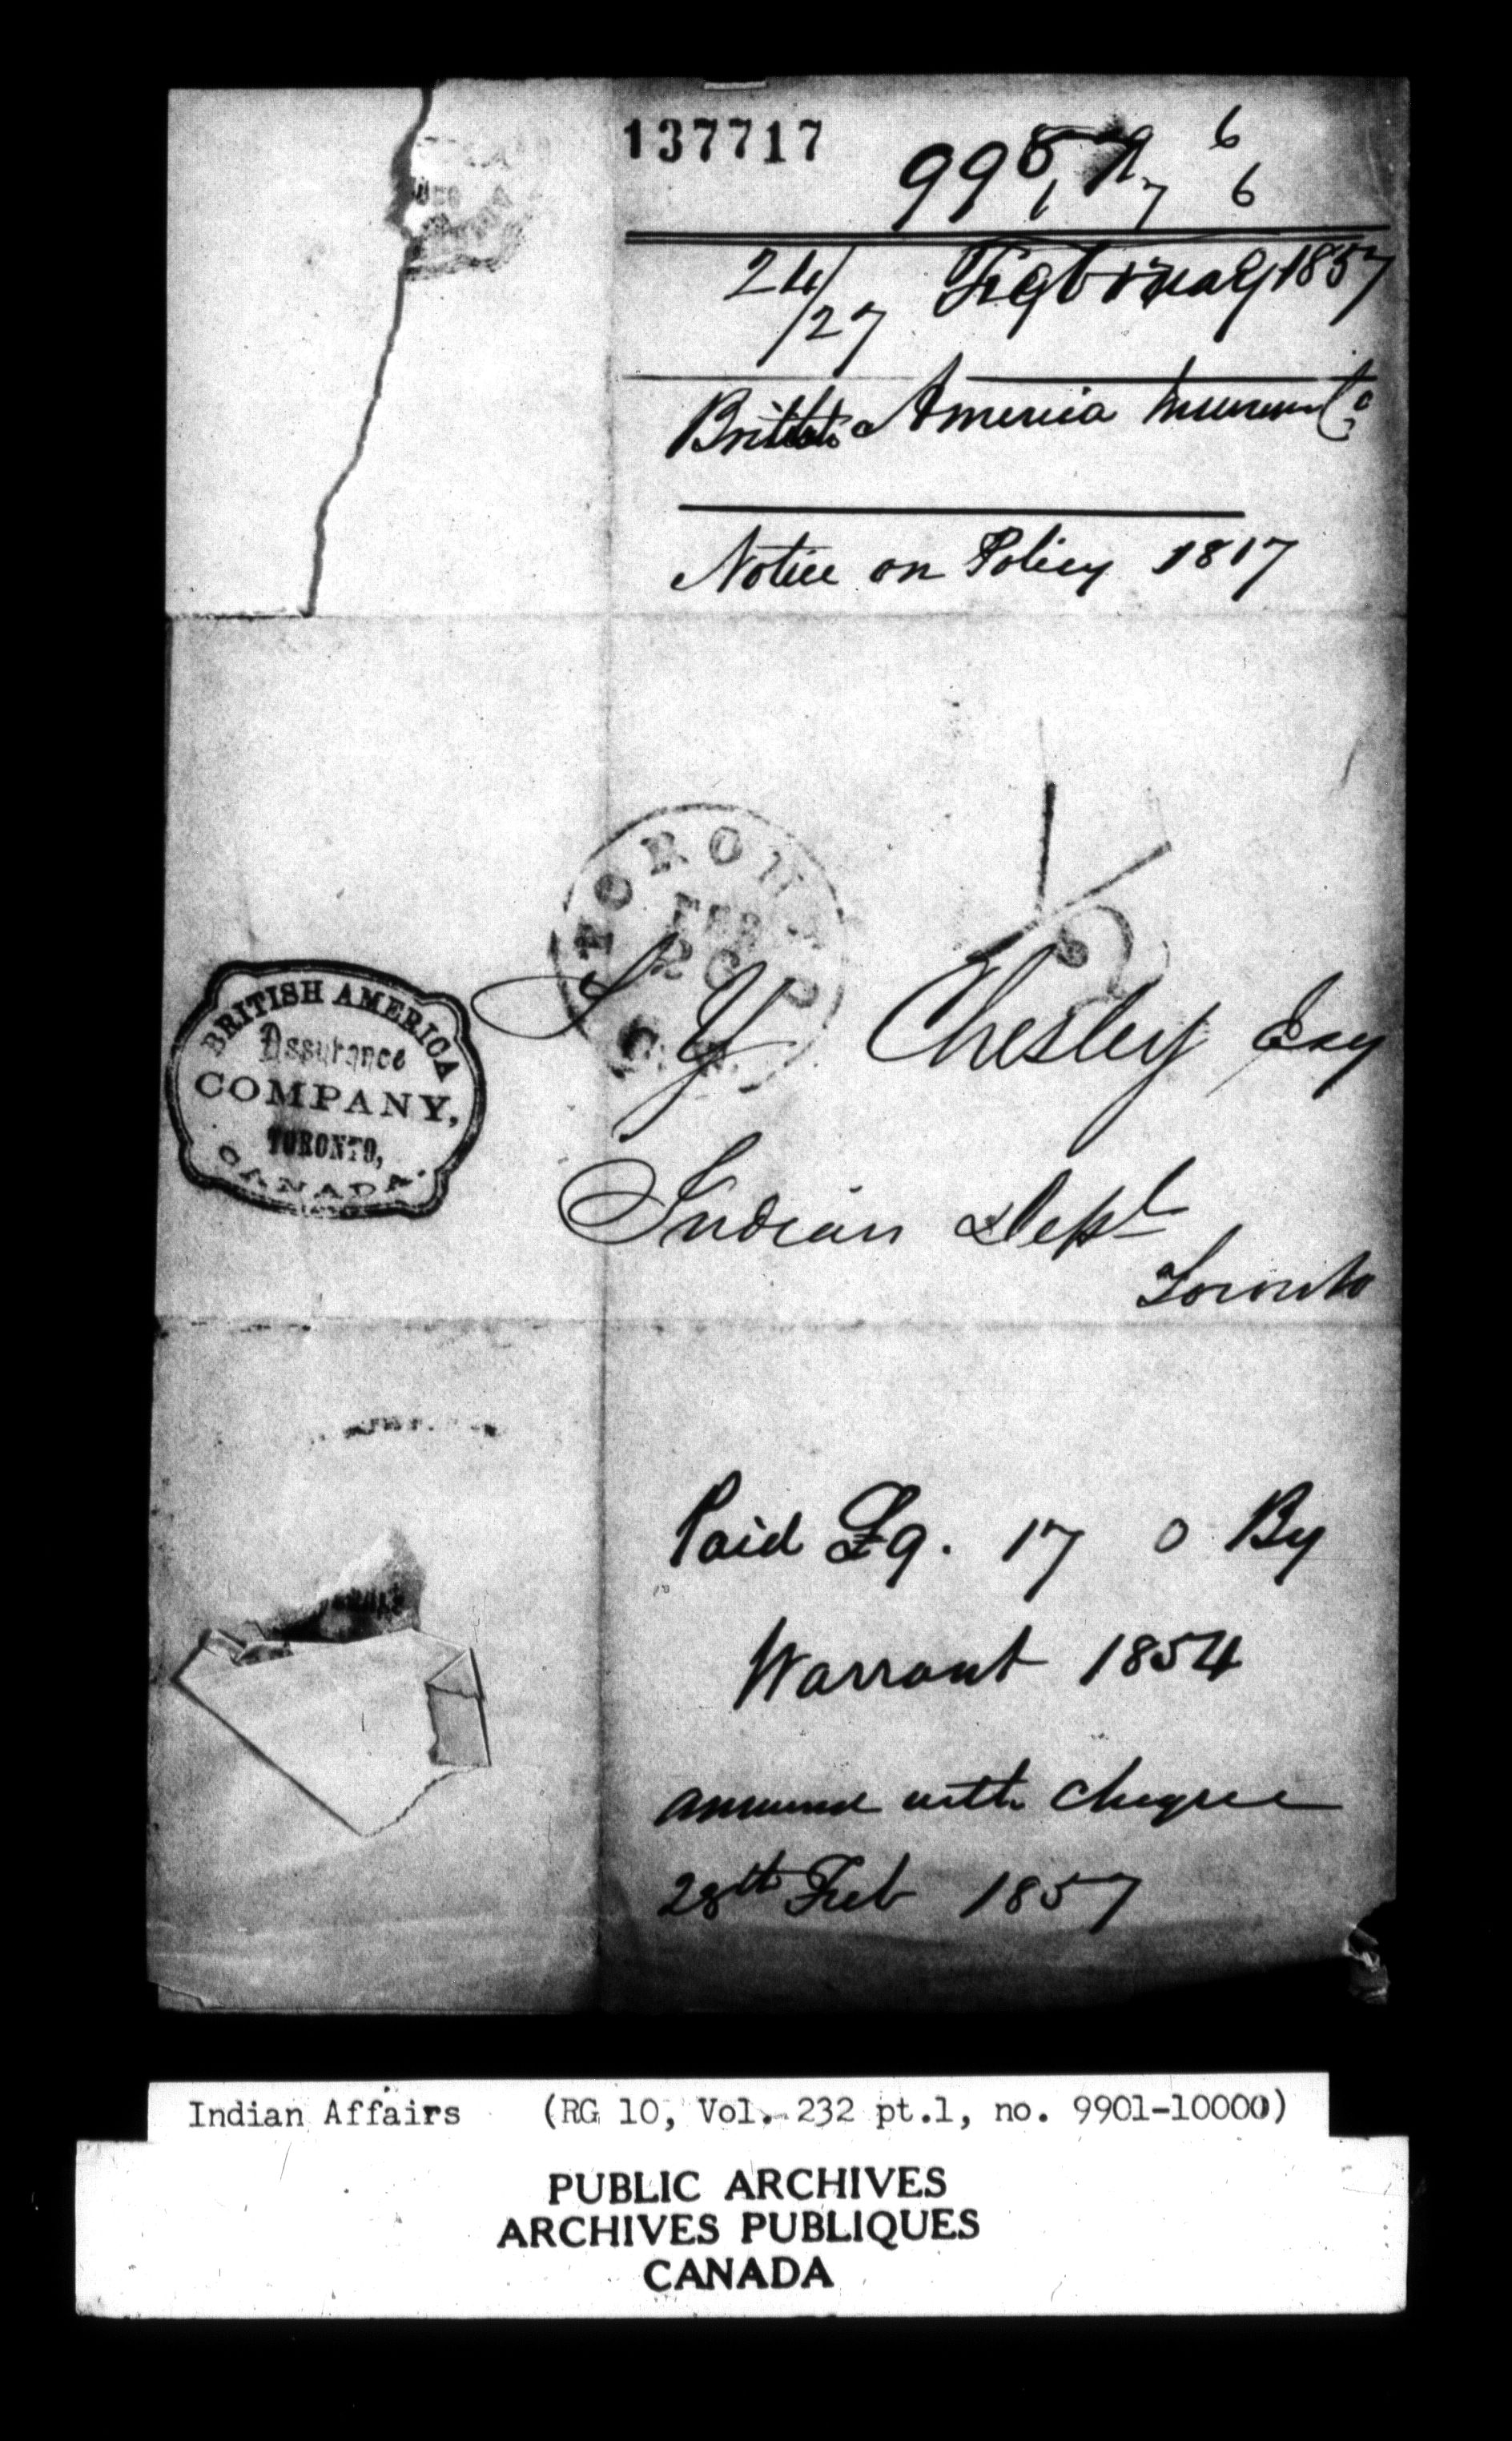 137717
24/27 February 1857
British America Insurance Co
Notice on Policy 1817
TORONTO
FEB
C.W.
S Y Chesley Esq
BRITISH AMERICA
Assurance
COMPANY,
TORONTO,
CANADA.
Indian Dept
Toronto
Paid £9. 17 0 By
Warrant 1854
answered with cheque
28th Feb 1857
Indian Affairs (RG 10, Vol. 232 pt.1, no. 9901-10000)
PUBLIC ARCHIVES
ARCHIVES PUBLIQUES
CANADA